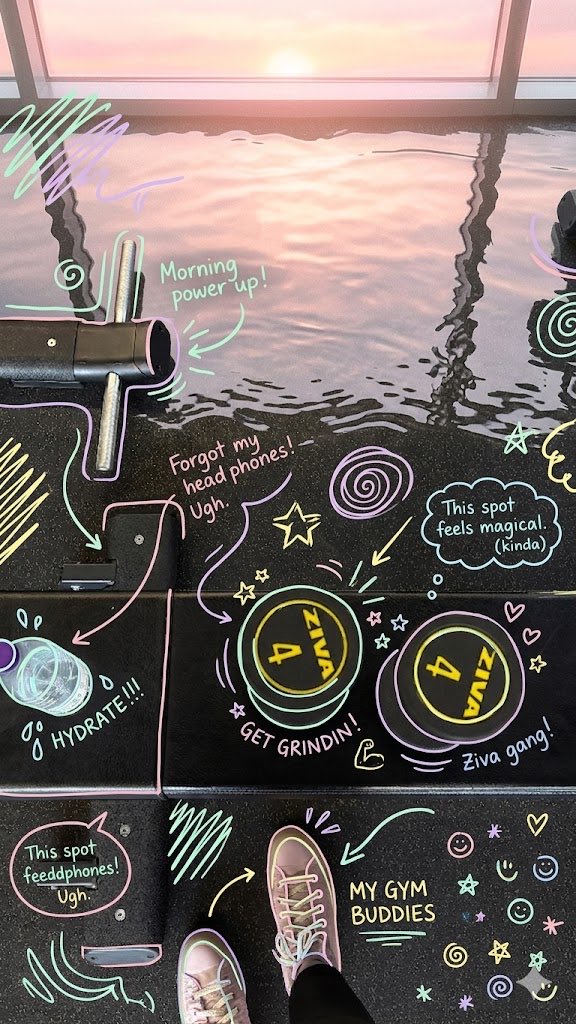 Morning
power up!
Forgot my
head phones!
Ugh.
This spot
feels magical.
(kinda)
ZIVA
4
ZIVA
4
HYDRATE!!!
GET GRINDIN!
Ziva gang!
This spot
feeddphones!
Ugh.
MY GYM
BUDDIES